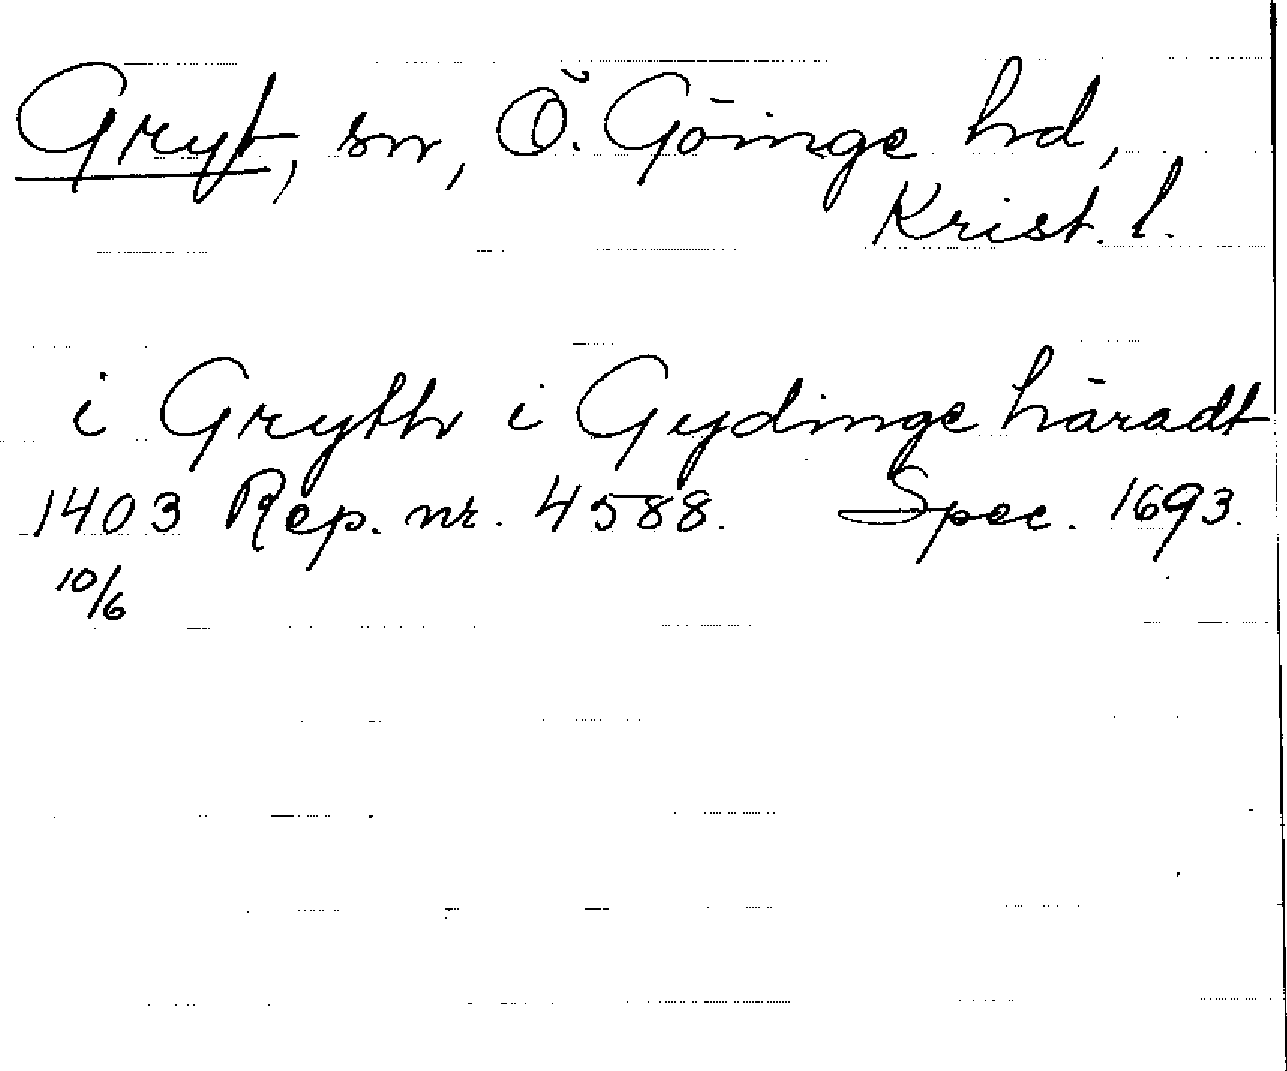 Gryt, sn, Ö. Göinge hd,
Krist. l.
i Gryth i Gydinge häradt
1403 Rep. nr. 4588. Spec. 1693.
10/6